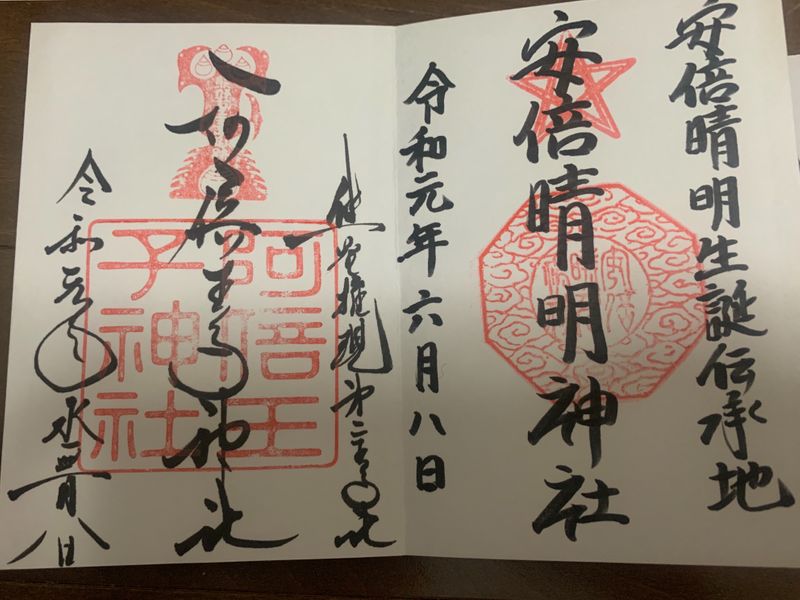 安倍晴明生誕伝承地
安倍晴明神社
令和元年六月八日
熊野権現第二王子社
阿倍王子神社
阿倍王
子神社
令和元年水無月八日